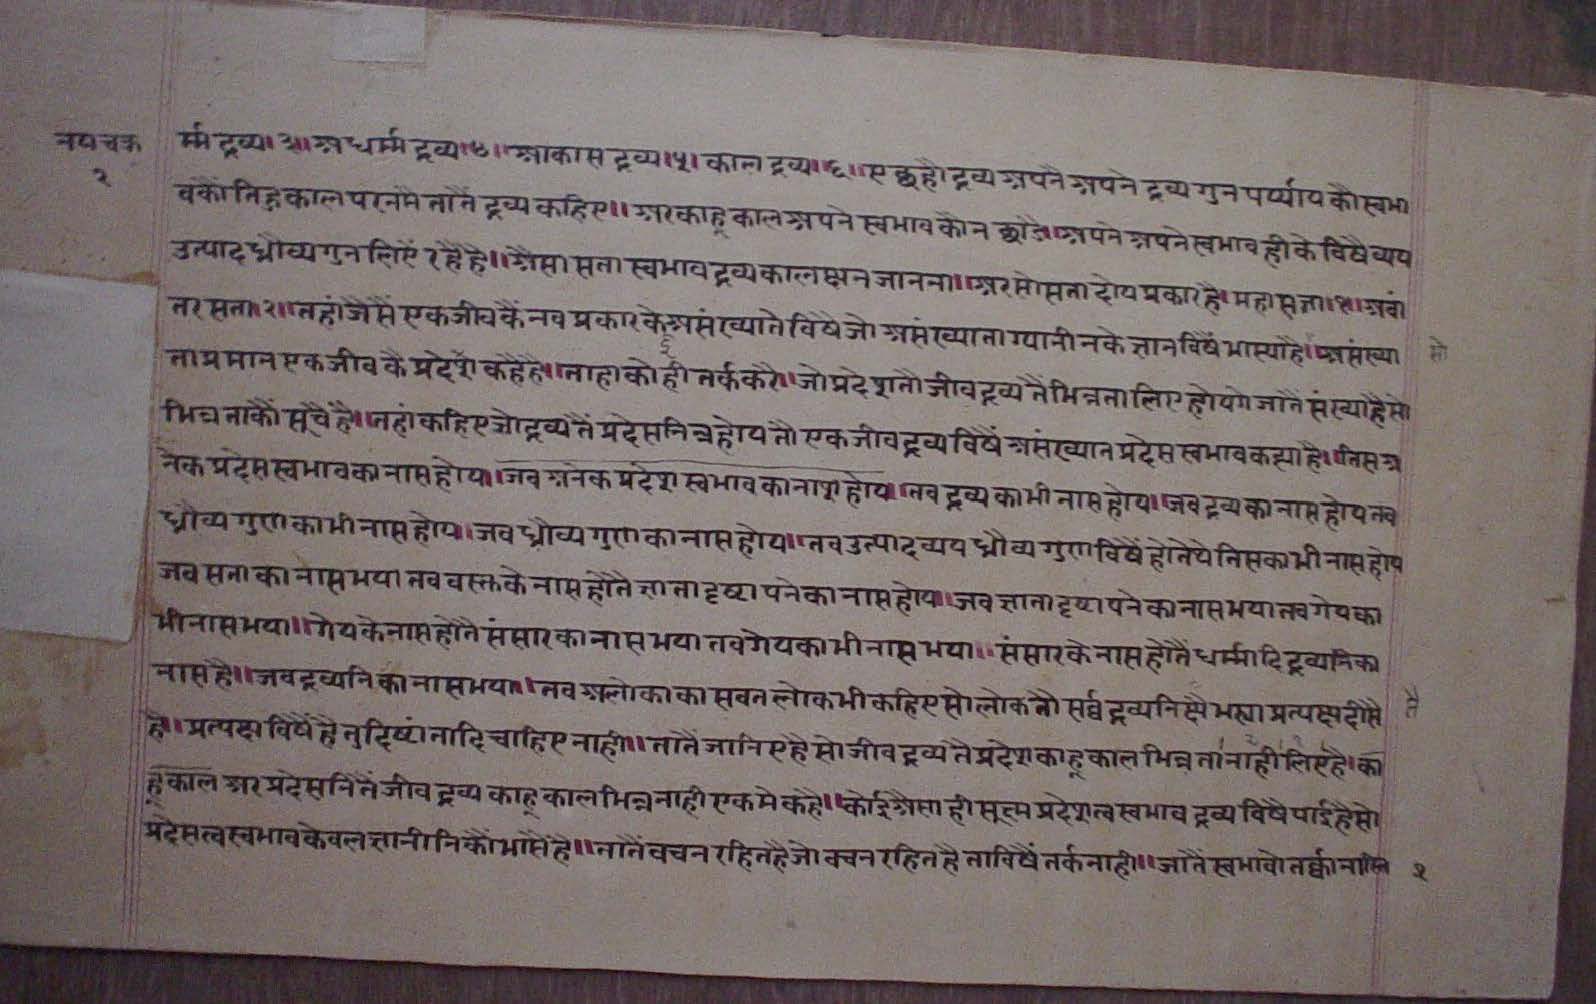 नयचक्र
र्म्म द्रव्य।३। अधर्म्म द्रव्य।४।। आकास द्रव्य।५। काल द्रव्य।६।। ए छहौ द्रव्य अपनै अपने द्रव्य गुन पर्य्याय कौ स्वभा
वकौं तिहूकाल परनमै तातैं द्रव्य कहिए।। अर काहू काल अपने स्वभाव कौ न छाडै। अपने अपने स्वभाव ही के विषै व्यय
उत्पाद ध्रौव्य गुन लिऐं रहै है।। औसा सता स्वभाव द्रव्य का लक्षन जानना।। अर सो सता दोय प्रकार है। महासत्ता।१। अवां
तर सता।२। तहां जैसैं एक जीव कैं नव प्रकार के असंख्याते विषै जो असंख्याता ग्यानीनके ज्ञान विषैं भास्या है। असंख्या
सो
ता प्रमान एक जीव कै प्रदेश कहै है।। ताहा कोही तर्क करै। जो प्रदेश तौ जीव द्रव्य तैं भिन्नता लिए होयगे जातैं संख्या है सो
भिन्नता कौं सूचै है।। तहां कहिए जो द्रव्य तैं प्रदेस भिन्न होय तौ एक जीव द्रव्य विषैं असंख्यान प्रदेस स्वभाव कह्या है। तिस अ
नेक प्रदेस स्वभाव का नास होय। जव अनेक प्रदेश स्वभाव का नाश होय। तव द्रव्य का भी नास होय। जव द्रव्य का नास होय तव
ध्रौव्य गुण का भी नास होय। जव ध्रौव्य गुण का नास होय।। तव उत्पाद व्यय ध्रौव्य गुण विषैं होतेये तिसका भी नास होय
जव सता का नास भया तव वस्त के नास होतै ज्ञाता दृष्टा पने का नास होय। जव ज्ञाता दृष्टा पने का नास भया तव गेय का
भी नास भया।। गेय के नास होतै संसार का नास भया तव गेय का भी नास भया।। संसार के नास होतैं धर्म्मादि द्रव्यनिका
नास है।। जव द्रव्यनि का नास भया।। तव अलोकाकासवत लोक भी कहिए सो लोक तौ सर्व्व द्रव्यनि भऱ्या प्रत्यक्ष दीसै
तै
है।। प्रत्यक्ष विषैं हेतु दिष्टांतादि चाहिए नाही।। तातैं जानिए है सो जीव द्रव्य तै प्रदेश काहू काल भिन्नता नाही लिए है। का
हू काल अर प्रदेसनितैं जीव द्रव्य काहू काल भिन्न नाही एकमेक है।। कोई औसा ही सूक्ष्म प्रदेशत्व स्वभाव द्रव्य विषै पाईहै सो
प्रदेसत्व स्वभाव केवल ज्ञानीनिकौं भासै है।। तातैं वचन रहित है जो वचन रहित है ता विषैं तर्क नाही।। जातैं स्वभावो तर्क्को नास्ति